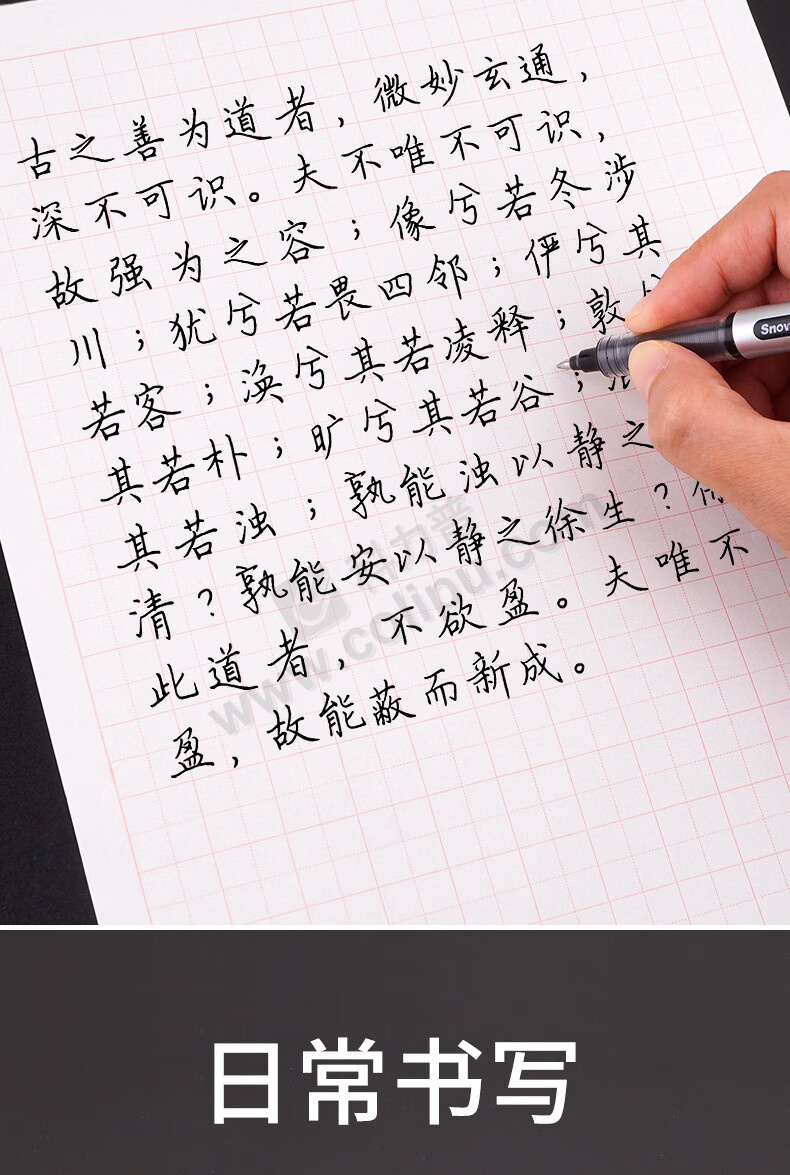 古之善为道者，微妙玄通，
深不可识。夫不唯不可识，
故强为之容；像兮若冬涉
川；犹兮若畏四邻；俨兮其
若客；涣兮其若凌释；敦兮
其若朴；旷兮其若谷；
其若浊；孰能浊以静之
清？孰能安以静之徐生？
此道者，不欲盈。夫唯不
盈，故能蔽而新成。
Snow
科力普
www.colipu.com
日常书写